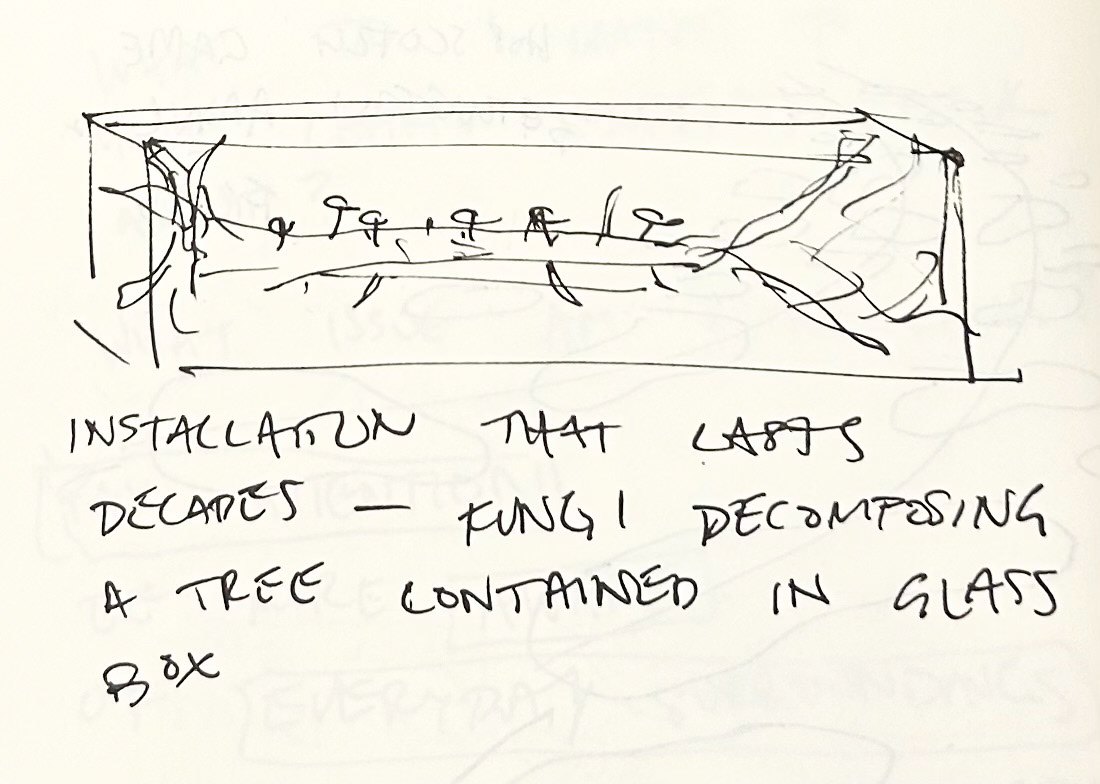 INSTALLATION THAT LASTS
DECADES — FUNGI DECOMPOSING
A TREE CONTAINED IN GLASS
BOX